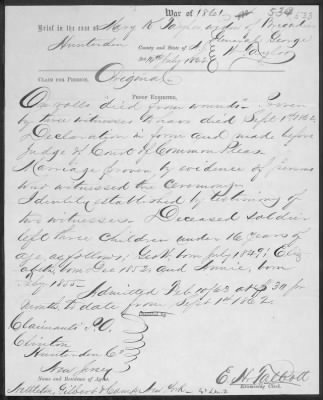 War of 1861. 534 533
Brief in the case of Mary R Taylor widow of Brevet
Hunterdon County and State of N.J. General George
W. Taylor
July 1862
CLAIM FOR PENSION. Original
PROOF EXHIBITED.
On rolls "died from wounds". Proven
by three witnesses & was died Sept 1st 1862
Declaration in form and made before
Judge of Court of Common Pleas.
Marriage proven by evidence of persons
was witnessed the Ceremony.
Identity established by testimony of
two witnesses. Deceased soldier
left three children under 16 years of
age, as follows; Geo W. born July 1849; Eliz
abeth, born Dec 1852, and Annie, born
July 1855.
Admitted Feb 10/63 at $30 per
month, to date from Sept 1st 1862.
Claimants P.O.
Clinton
Hunterdon Co
New Jersey
E. H. Talbott
Examining Clerk.
Name and Residence of Agent.
Nettleton, Gilbert & Camp New York